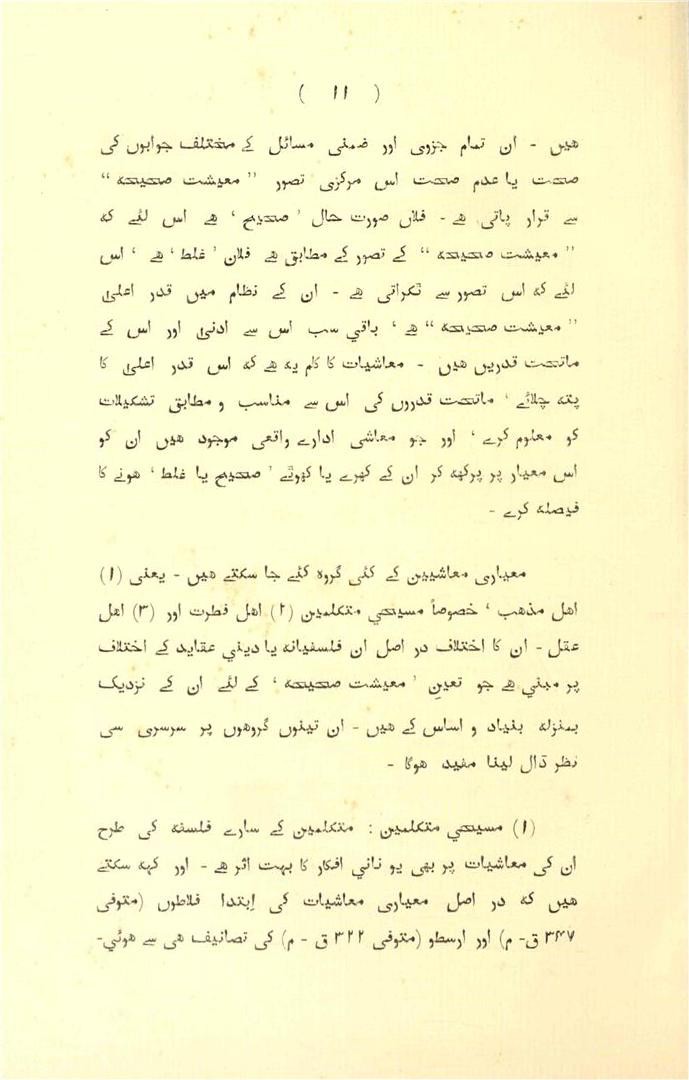 ( ۱۱ )
هیں - ان تمام جزوی اور ضمنی مسائل کے مختلف جوابوں کی
صحت یا عدم صحت اس مرکزی تصور ”معیشت صحیحہ“
سے قرار پاتی ہے - فلاں صورت حال ’صحیح‘ ہے اس لئے کہ
”معیشت صحیحہ“ کے تصور کے مطابق ہے فلان ’غلط‘ ہے ، اس
لئے کہ اس تصور سے ٹکراتی ہے - ان کے نظام میں قدر اعلیٰ
”معیشت صحیحہ“ ہے ، باقی سب اس سے ادنیٰ اور اس کے
ماتحت قدریں هیں - معاشیات کا کام یہ ہے کہ اس قدر اعلیٰ کا
پتہ چلائے ، ماتحت قدروں کی اس سے مناسب و مطابق تشکیلات
کو معلوم کرے ، اور جو معاشی ادارے واقعی موجود هیں ان کو
اس معیار پر پرکھ کر ان کے کھرے یا کھوٹے ’صحیح یا غلط‘ ہونے کا
فیصلہ کرے -
معیاری معاشیین کے کئی گروہ کئے جا سکتے هیں - یعنی (۱)
اهل مذهب ، خصوصاً مسیحی متکلمین (۲) اهل فطرت اور (۳) اهل
عقل - ان کا اختلاف در اصل ان فلسفیانہ یا دینی عقاید کے اختلاف
پر مبنی ہے جو تعینِ ’معیشت صحیحہ‘ کے لئے ان کے نزدیک
بمنزلہ بنیاد و اساس کے هیں - ان تینوں گروهوں پر سرسری سی
نظر ڈال لینا مفید هوگا -
(۱) مسیحی متکلمین : متکلمین کے سارے فلسفہ کی طرح
ان کی معاشیات پر بھی یونانی افکار کا بہت اثر ہے - اور کہہ سکتے
هیں کہ در اصل معیاری معاشیات کی اِبتدا فلاطوں (متوفی
۳۴۷ ق - م) اور ارسطو (متوفی ۳۲۲ ق - م) کی تصانیف هی سے هوئی -